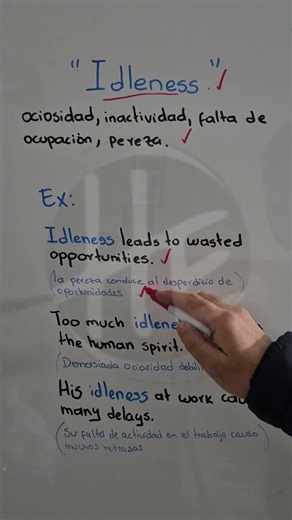 "Idleness"
ociosidad, inactividad, falta de
ocupación, pereza.
Ex:
Idleness leads to wasted
opportunities.
(la pereza conduce al desperdicio de
oportunidades)
Too much
the human spirit.
(Demasiada ociosidad
His idleness at work
many delays.
(Su falta de actividad en el trabajo causo
muchos retrasos